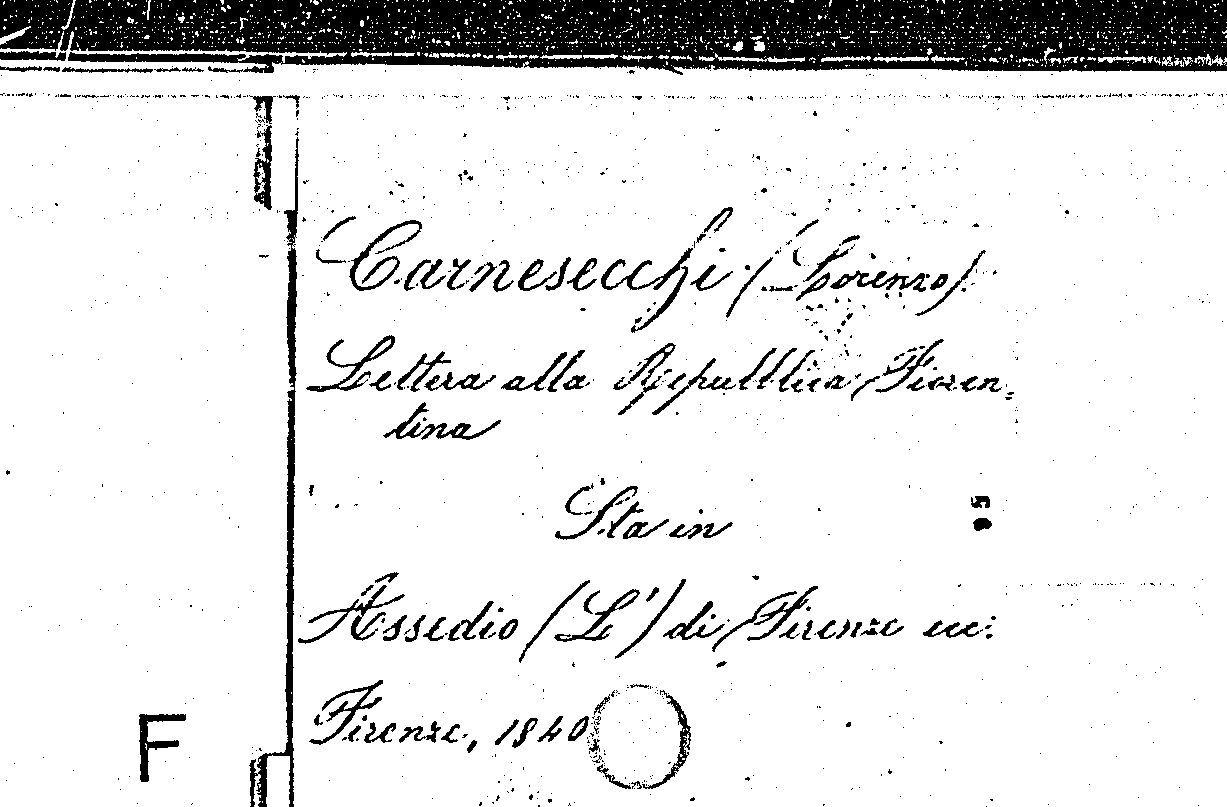 Carnesecchi (Lorenzo).
Lettera alla Repubblica Fioren=
tina
Sta in
Assedio (L') di Firenze ecc:
Firenze, 1840
F